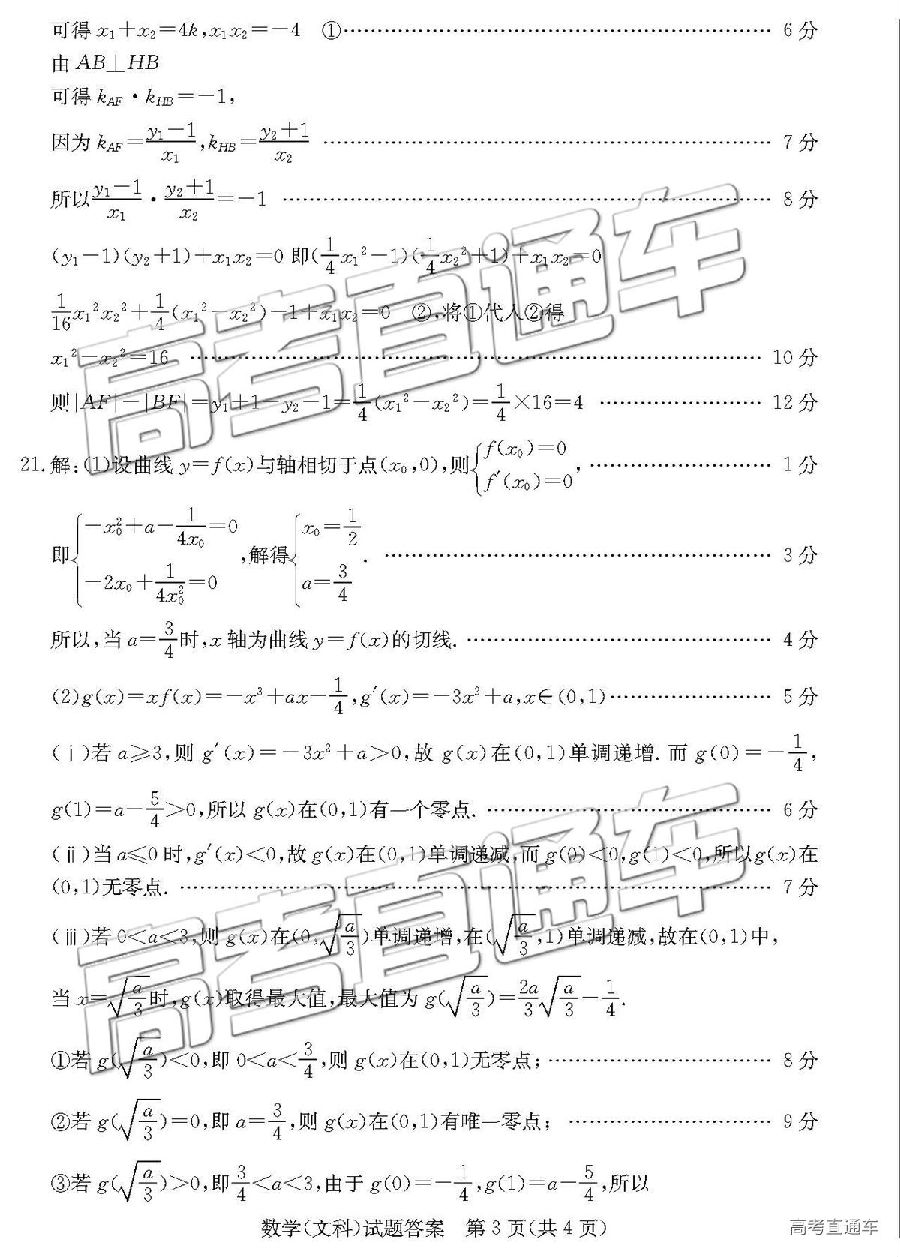 可得 x₁+x₂=4k,x₁x₂=-4 ①…………………… 6 分
由 AB⊥HB
可得 k_AF·k_HB=-1,
因为 k_AF=(y₁-1)/x₁,k_HB=(y₂+1)/x₂ …………………… 7 分
所以(y₁-1)/x₁·(y₂+1)/x₂=-1 …………………… 8 分
(y₁-1)(y₂+1)+x₁x₂=0 即(1/4x₁²-1)(1/4x₂²+1)+x₁x₂=0
1/16x₁²x₂²+1/4(x₁²-x₂²)-1+x₁x₂=0 ②,将①代入②得
x₁²-x₂²=16 …………………… 10 分
则|AF|-|BF|=y₁+1-y₂-1=1/4(x₁²-x₂²)=1/4×16=4 …………………… 12 分
21.解:(1)设曲线 y=f(x)与轴相切于点(x₀,0),则{f(x₀)=0 f′(x₀)=0, …………………… 1 分
即{-x₀²+a-1/(4x₀)=0 -2x₀+1/(4x₀²)=0,解得{x₀=1/2 a=3/4. …………………… 3 分
所以,当 a=3/4时,x 轴为曲线 y=f(x)的切线. …………………… 4 分
(2)g(x)=xf(x)=-x³+ax-1/4,g′(x)=-3x²+a,x∈(0,1)…………………… 5 分
(ⅰ)若 a≥3,则 g′(x)=-3x²+a>0,故 g(x)在(0,1)单调递增.而 g(0)=-1/4,
g(1)=a-5/4>0,所以 g(x)在(0,1)有一个零点. …………………… 6 分
(ⅱ)当 a≤0 时,g′(x)<0,故 g(x)在(0,1)单调递减,而 g(0)<0,g(1)<0,所以g(x)在
(0,1)无零点. …………………… 7 分
(ⅲ)若 0<a<3,则 g(x)在(0,√(a/3))单调递增,在(√(a/3),1)单调递减,故在(0,1)中,
当 x=√(a/3)时,g(x)取得最大值,最大值为 g(√(a/3))=2a/3√(a/3)-1/4.
①若 g(√(a/3))<0,即 0<a<3/4,则 g(x)在(0,1)无零点; …………………… 8 分
②若 g(√(a/3))=0,即 a=3/4,则 g(x)在(0,1)有唯一零点; …………………… 9 分
③若 g(√(a/3))>0,即3/4<a<3,由于 g(0)=-1/4,g(1)=a-5/4,所以
数学(文科)试题答案 第 3 页(共 4 页)
高考直通车
高考直通车
高考直通车